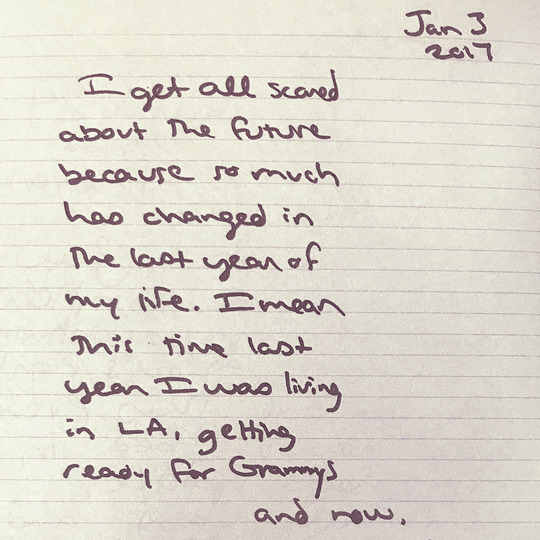 Jan 3
2017
I get all scared
about the future
because so much
has changed in
the last year of
my life. I mean
This time last
year I was living
in LA, getting
ready for Grammys
and now.